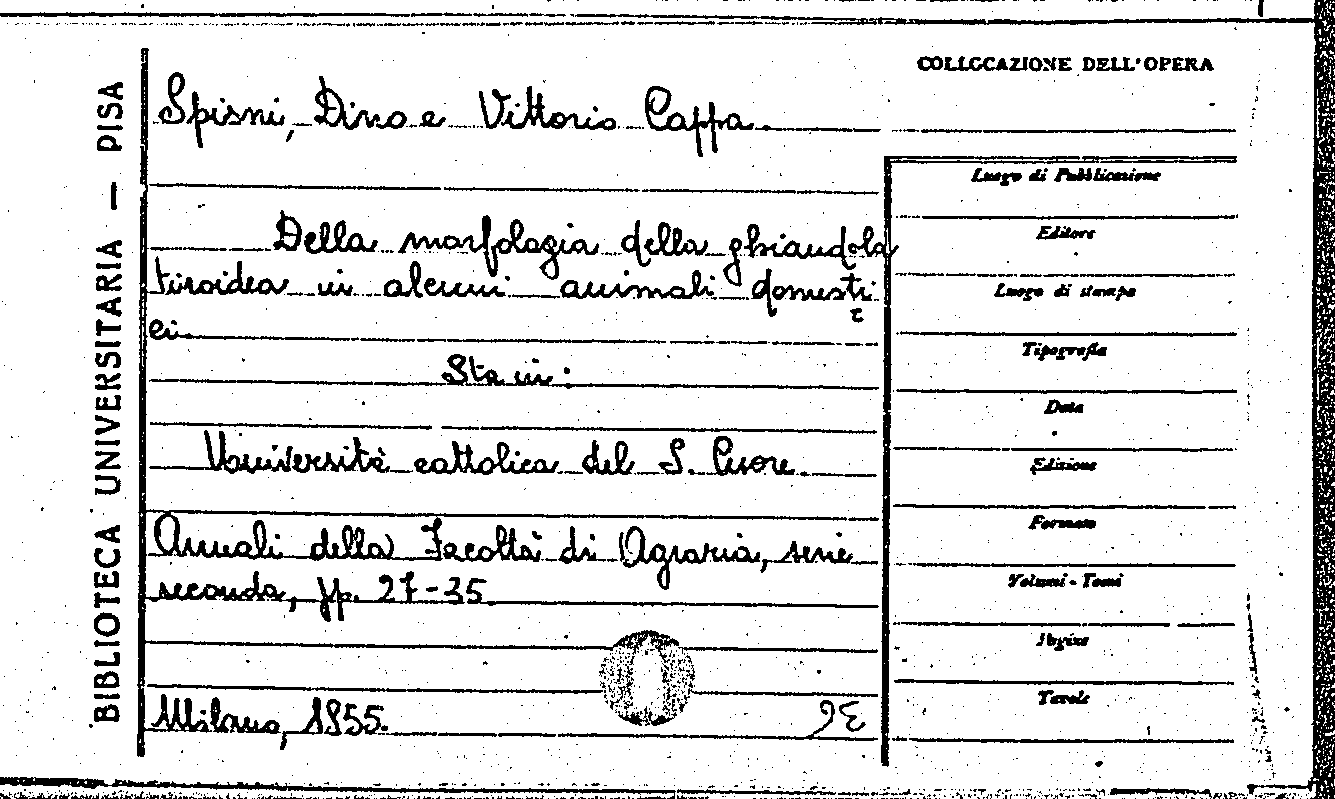 BIBLIOTECA UNIVERSITARIA — PISA
COLLOCAZIONE DELL'OPERA
Spisni, Dino e Vittorio Cappa.
Della morfologia della ghiandola
tiroidea in alcuni animali domesti
ci.
Sta in:
Università cattolica del S. Cuore.
Annali della Facoltà di Agraria, serie
seconda, pp. 27-35.
Milano, 1955.
Luogo di Pubblicazione
Editore
Luogo di stampa
Tipografia
Data
Edizione
Formato
Volumi - Tomi
Pagine
Tavole